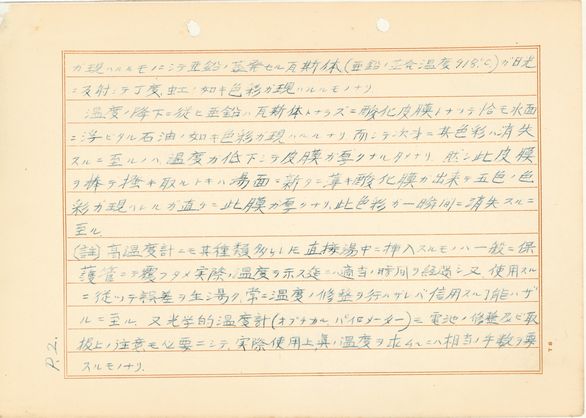 ガ現ハルルモノニシテ亜鉛ノ蒸発セル瓦斯体(亜鉛ノ蒸発温度918°C)ガ日光
ニ反射シテ丁度虹ノ如キ色彩ガ現ハルルモノナリ
温度ノ降下ニ従ヒ亜鉛ハ瓦斯体トナラズニ酸化皮膜トナリテ恰モ水面
ニ浮ビタル石油ノ如キ色彩ガ現ハルルナリ 而シテ次ギニ其色彩ハ消失
スルニ至ルノハ温度ガ低下シテ皮膜ガ厚クナルタメナリ 然シ此皮膜
ヲ棒デ掻キ取ルトキハ湯面ニ新タニ薄キ酸化膜ガ出来テ五色ノ色
彩ガ現ハレルガ直グニ此膜ガ厚クナリ此色彩ガ一瞬間ニ消失スルニ
至ル
(註) 高温度計ニモ其種類多シト雖モ直接湯中ニ挿入スルモノハ一般ニ保
護管ニテ覆フタメ実際ノ温度ヲ示ス迄ニ適当ノ時間ヲ経過シ又使用スル
ニ従ツテ誤差ヲ生ジ易ク常ニ温度ノ修整ヲ行ハザレバ信用スル能ハザ
ルニ至ル 又光学的温度計(オプチカル パイロメーター)ニ電池ノ修整及ビ取
扱上ノ注意モ必要ニシテ実際使用上真ノ温度ヲ求ムルニハ相当ノ手数ヲ要
スルモノナリ
P.2.